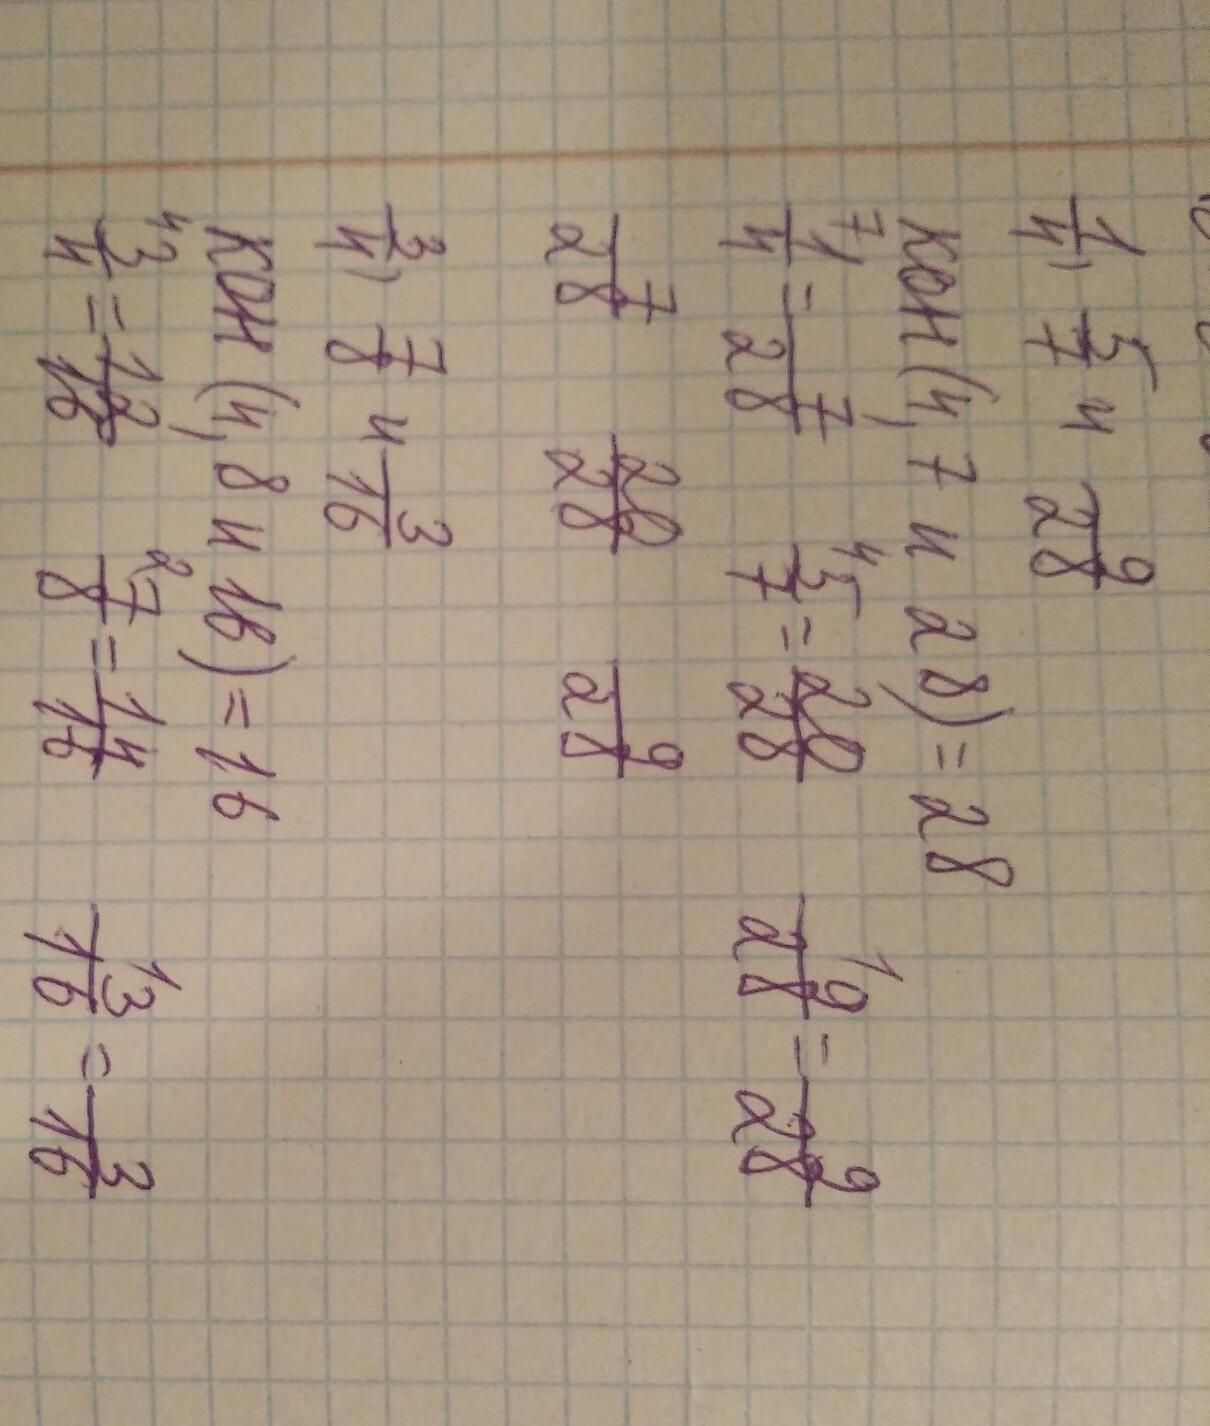 1/4, 5/7 и 9/28
КОН (4, 7 и 28) = 28
⁷1/4 = 7/28 ⁴5/7 = 20/28 ¹9/28 = 9/28
7/28 20/28 9/28
3/4, 7/8 и 3/16
КОН (4, 8 и 16) = 16
⁴3/4 = 12/16 ²7/8 = 14/16 ¹3/16 = 3/16